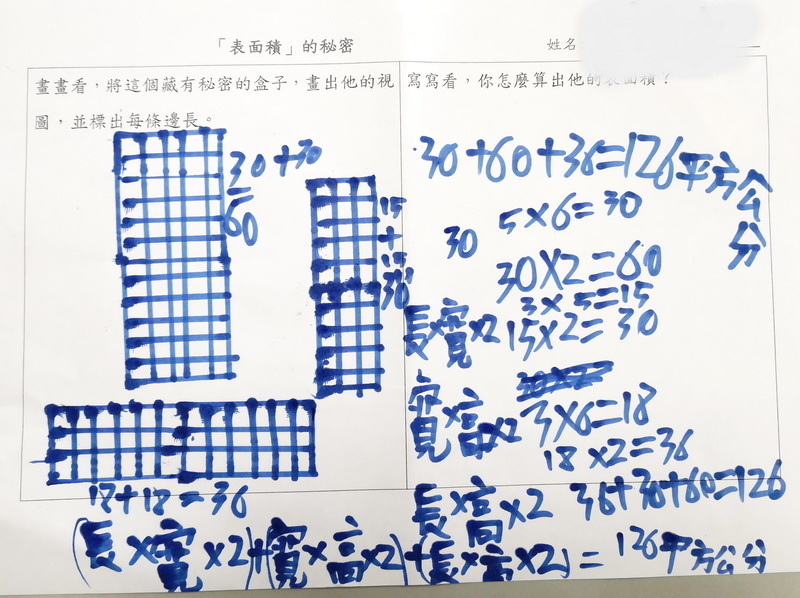 「表面積」的秘密
姓名
畫畫看，將這個藏有秘密的盒子，畫出他的視
圖，並標出每條邊長。
30+30
=
60
15
+
15
30
18+18=36
寫寫看，你怎麼算出他的表面積？
30+60+36=126平方公分
5×6=30
30
30×2=60
3×5=15
長×寬×2 15×2=30
寬×高×2 3×6=18
18×2=36
長×高×2 36+30+60=126
(長×寬×2)+(寬×高×2)+(長×高×2)=126平方公分